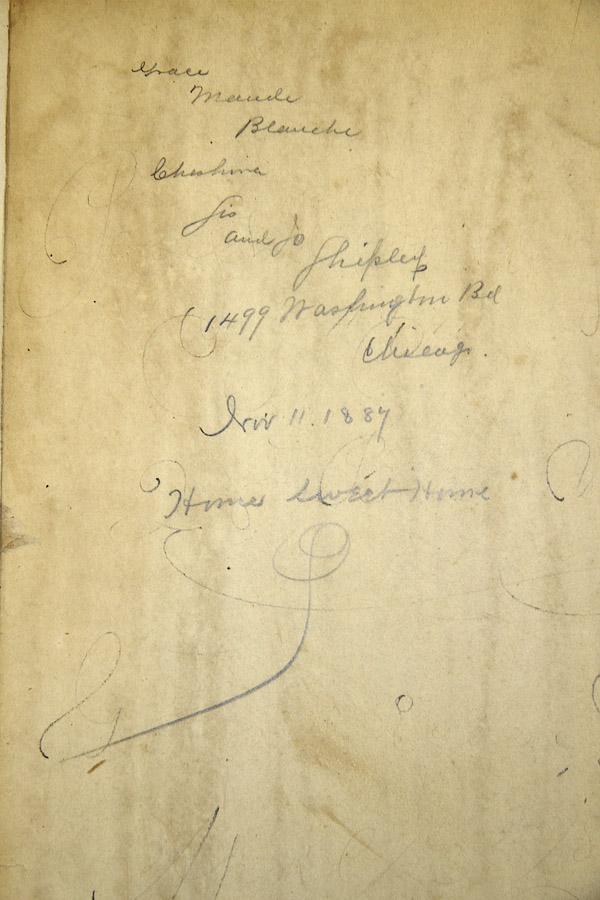 Grace
Maude
Blanche
Cheshire
Sis
and Jo
Shipley
1499 Washington Bd
Chicago.
Nov 11. 1887
Home Sweet Home